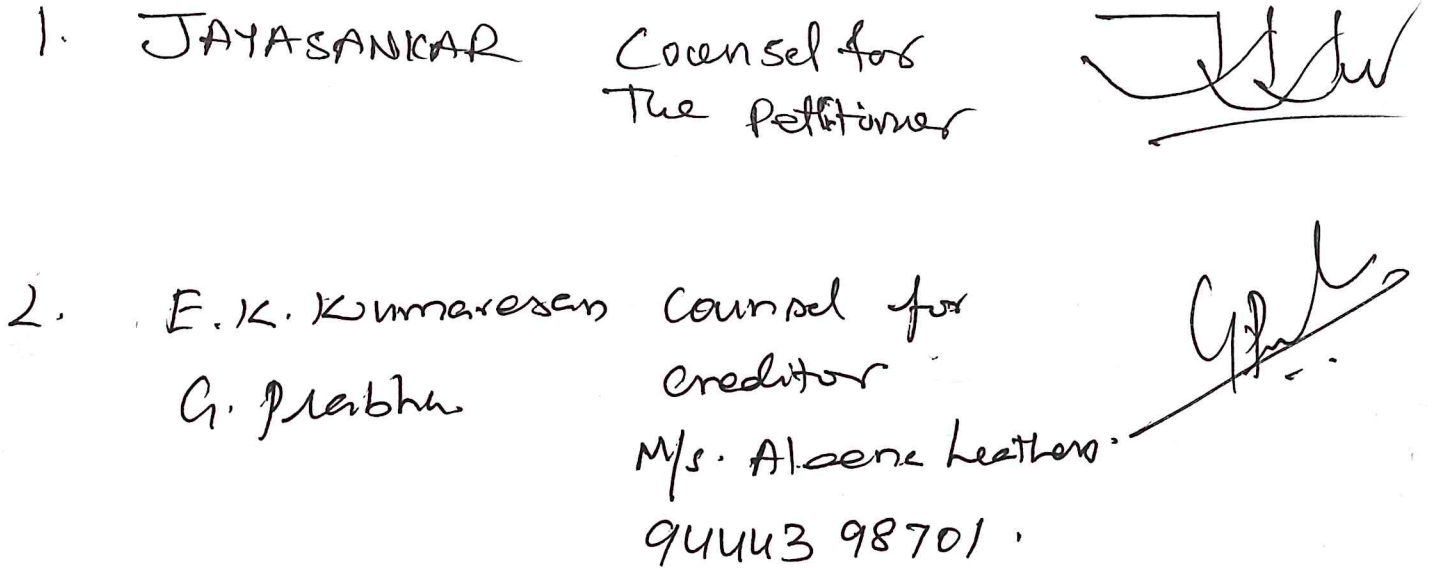 1. JAYASANKAR Counsel for
The Petitioner
2. E.K. Kumaresan Counsel for
G. Prabhu creditor
M/s. Aleena Leathers.
94443 98701.